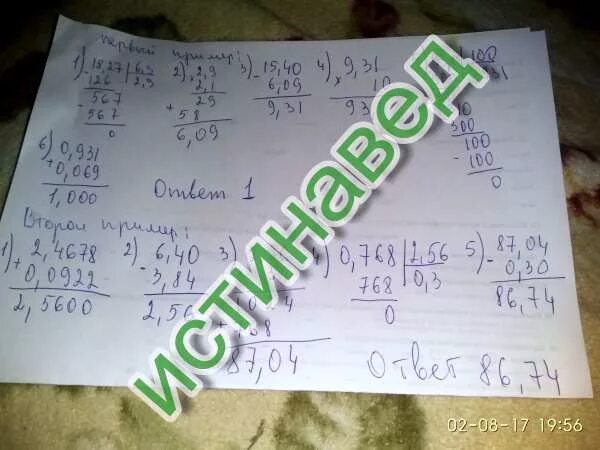 первый пример:
1) 18,27 | 6,3
126 | 2,9
- 567
567
0
2) × 2,9
2,1
29
+ 58
6,09
3) - 15,40
6,09
9,31
4) × 9,31
10
93
100
31
300
100
- 100
0
6) 0,931
+ 0,069
1,000
Ответ 1
Второй пример:
1) + 2,4678
0,0922
2,5600
2) - 6,40
3,84
2,56
3)
87,04
0,768 | 2,56
768 | 0,3
0
5) - 87,04
0,30
86,74
Ответ 86,74
ИСТИНАВЕД
02-08-17 19:56